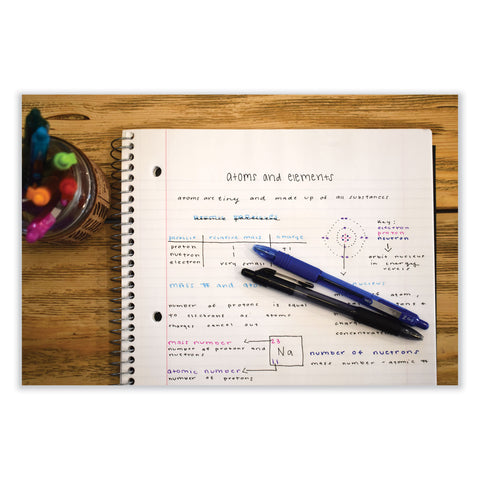 atoms and elements
atoms are tiny and made up of all substances
atomic particles
particle relative mass charge
proton 1 +1
nuetron 1
electron very small
key:
electron
proton
nuetron
orbit nucleus
in energy
levels
mass # and atom
nucleus
number of protons is equal
to electrons as atoms
charges cancel out
concentrated
mass number
number of protons and
nuetrons
23
Na
11
number of nuetrons
mass number - atomic #
atomic number
number of protons